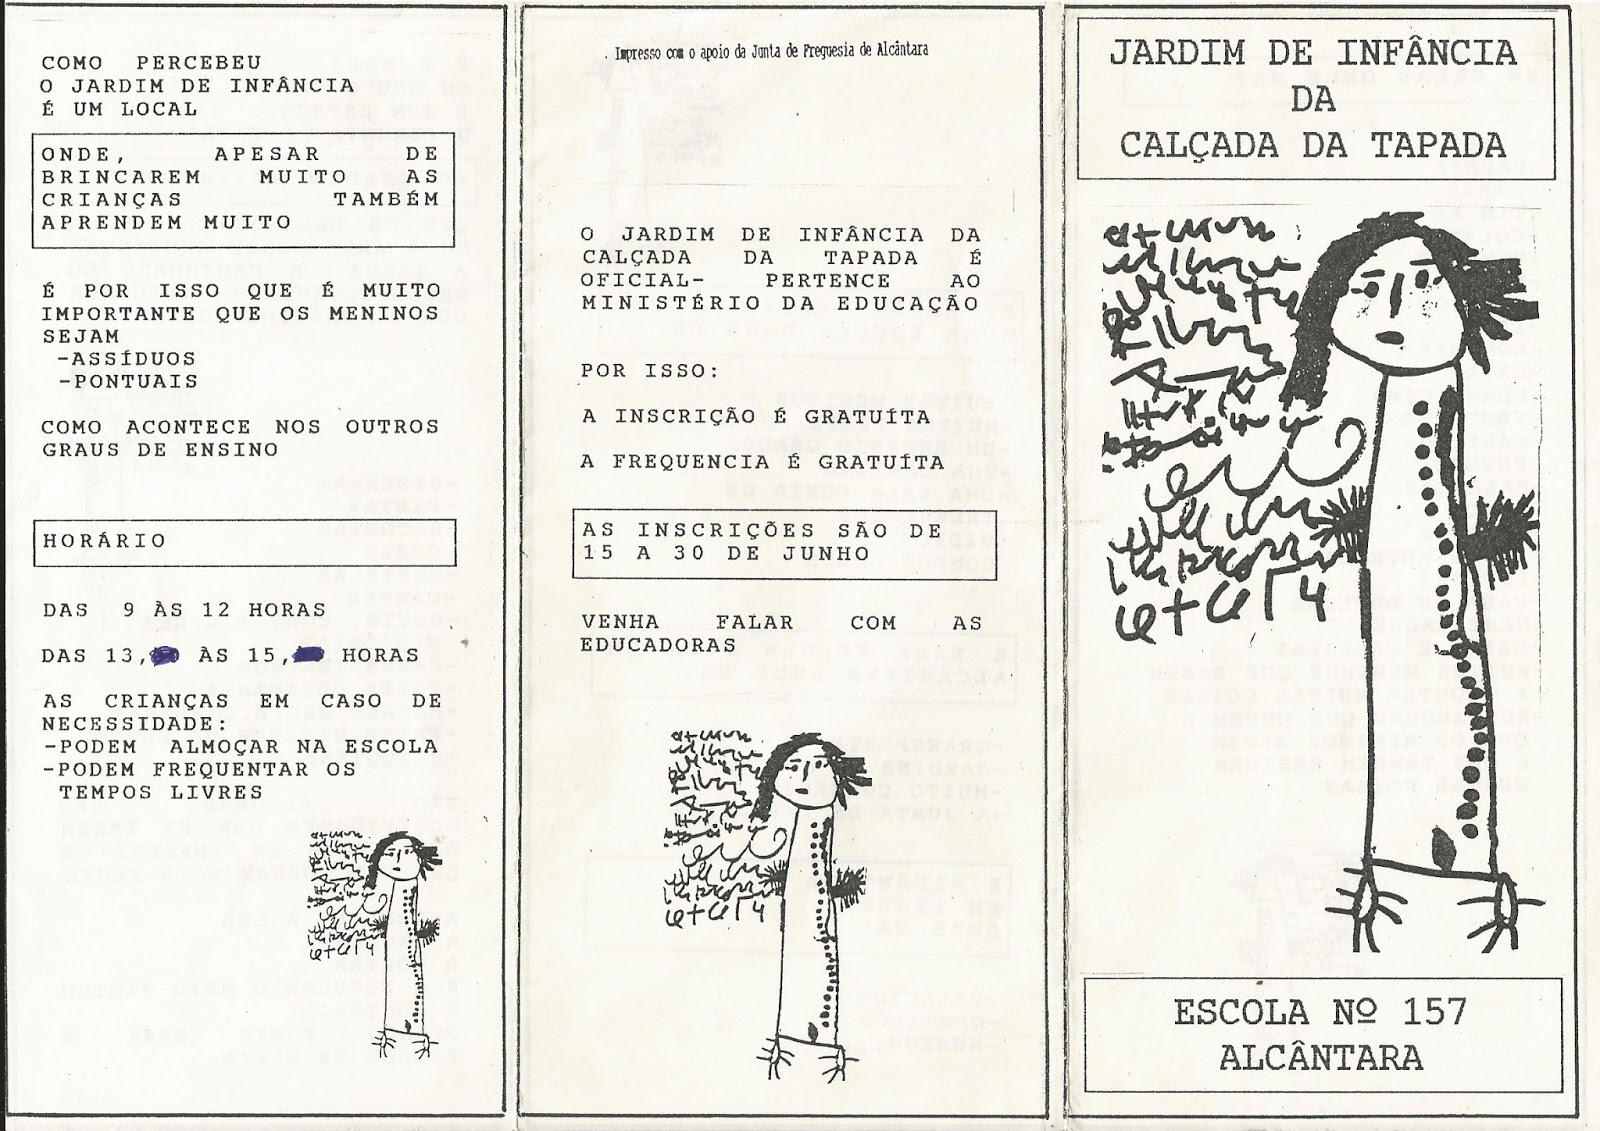 COMO PERCEBEU
O JARDIM DE INFÂNCIA
É UM LOCAL
ONDE, APESAR DE
BRINCAREM MUITO AS
CRIANÇAS TAMBÉM
APRENDEM MUITO
É POR ISSO QUE É MUITO
IMPORTANTE QUE OS MENINOS
SEJAM
-ASSÍDUOS
-PONTUAIS
COMO ACONTECE NOS OUTROS
GRAUS DE ENSINO
HORÁRIO
DAS 9 ÀS 12 HORAS
DAS 13, ÀS 15, HORAS
AS CRIANÇAS EM CASO DE
NECESSIDADE:
-PODEM ALMOÇAR NA ESCOLA
-PODEM FREQUENTAR OS
TEMPOS LIVRES
Impresso com o apoio da Junta de Freguesia de Alcântara
O JARDIM DE INFÂNCIA DA
CALÇADA DA TAPADA É
OFICIAL- PERTENCE AO
MINISTÉRIO DA EDUCAÇÃO
POR ISSO:
A INSCRIÇÃO É GRATUÍTA
A FREQUENCIA É GRATUÍTA
AS INSCRIÇÕES SÃO DE
15 A 30 DE JUNHO
VENHA FALAR COM AS
EDUCADORAS
JARDIM DE INFÂNCIA
DA
CALÇADA DA TAPADA
ESCOLA Nº 157
ALCÂNTARA